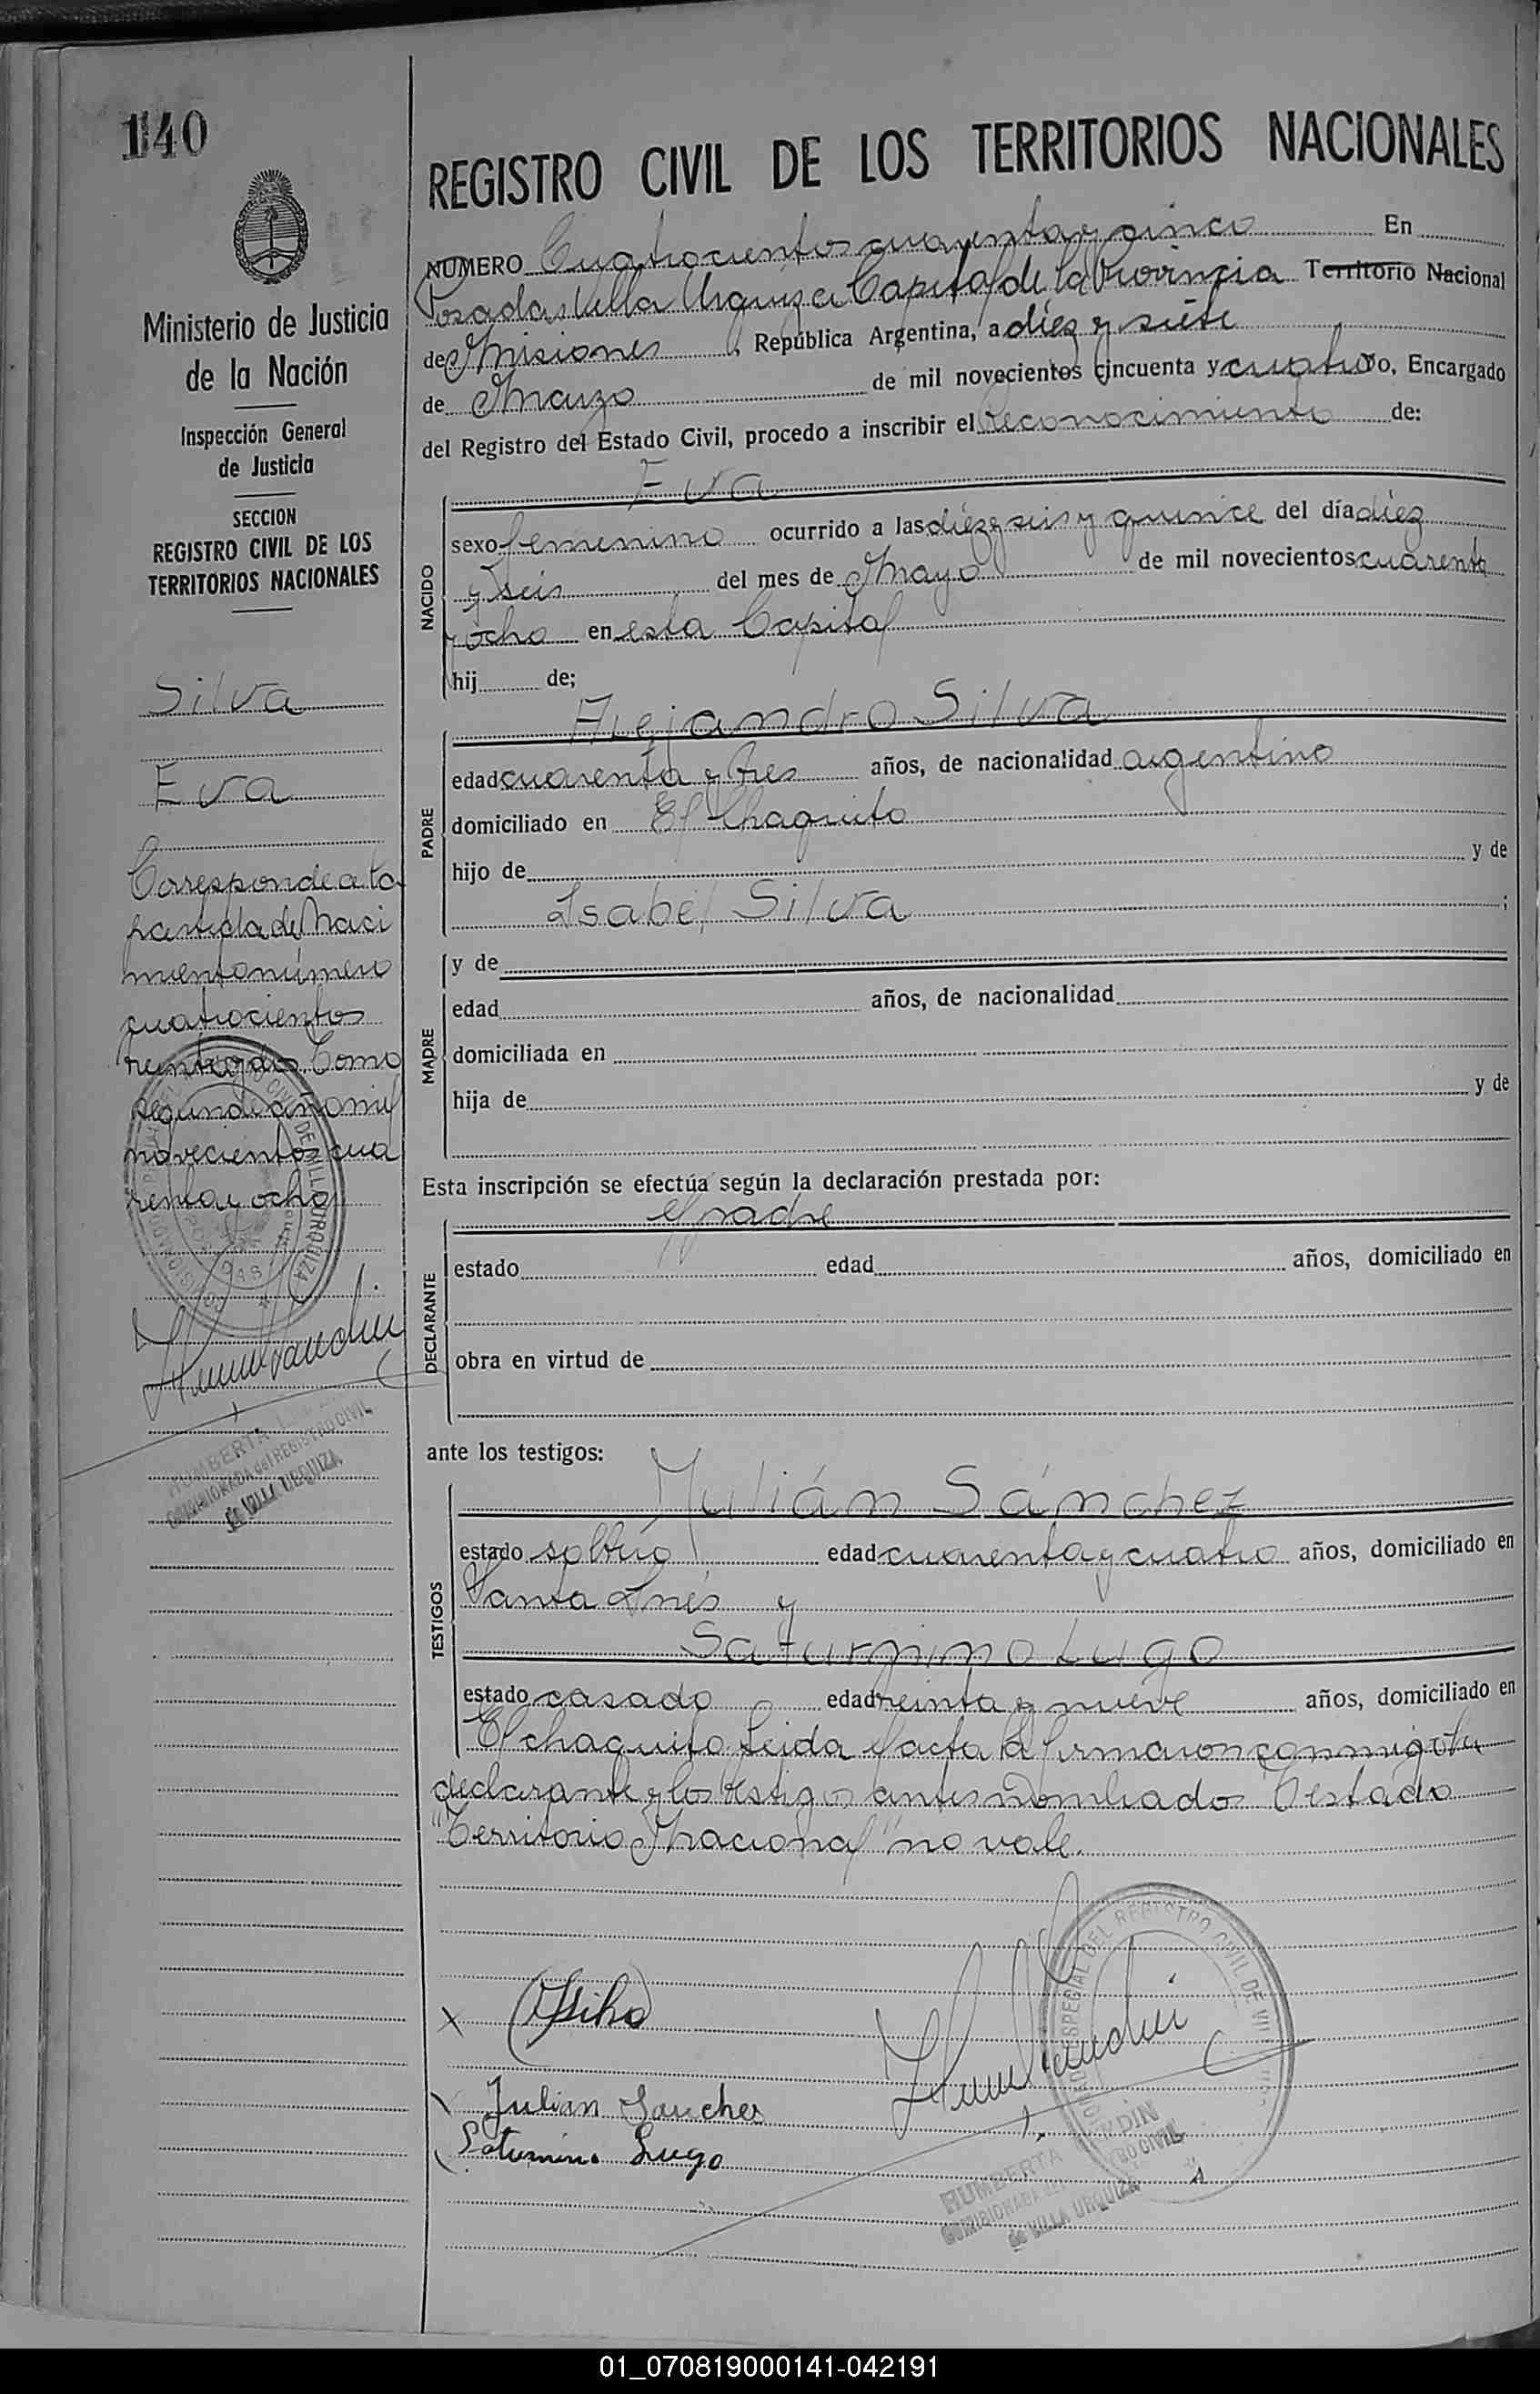 140
REGISTRO CIVIL DE LOS TERRITORIOS NACIONALES
NUMERO Cuatrocientos cuarenta y cinco En
Posadas Villa Urquiza Capital de la Provincia Territorio Nacional
de Misiones, República Argentina, a diez y siete
de Marzo de mil novecientos cincuenta y cuatro, Encargado
del Registro del Estado Civil, procedo a inscribir el reconocimiento de:
Ministerio de Justicia
de la Nación
Inspección General
de Justicia
SECCION
REGISTRO CIVIL DE LOS
TERRITORIOS NACIONALES
Silva
Eva
Corresponde a la
partida de Naci
miento número
cuatrocientos
Tomo
segundo año mil
novecientos cua
renta y ocho
HUMBERTA
COMISIONADA del REGISTRO CIVIL
de VILLA URQUIZA
NACIDO
Eva
sexo femenino ocurrido a las diez y seis y quince del día diez
y seis del mes de Mayo de mil novecientos cuarenta
y ocho en esta Capital
hij de;
PADRE
Alejandro Silva
edad cuarenta y tres años, de nacionalidad argentino
domiciliado en El Chaquito
hijo de y de
Isabel Silva ;
MADRE
y de
edad años, de nacionalidad
domiciliada en
hija de y de
Esta inscripción se efectúa según la declaración prestada por:
DECLARANTE
el padre
estado edad años, domiciliado en
obra en virtud de
ante los testigos:
TESTIGOS
Julián Sánchez
estado soltero edad cuarenta y cuatro años, domiciliado en
Santa Inés y
Saturnino Lugo
estado casado edad treinta y nueve años, domiciliado en
El chaquito Leida el acta la firmaron conmigo la
declarante y los testigos antes nombrados Testado
"Territorio Nacional" no vale.
Julian Sanches
Saturnino Lugo
HUMBERTA
de VILLA URQUIZA
01_070819000141-042191